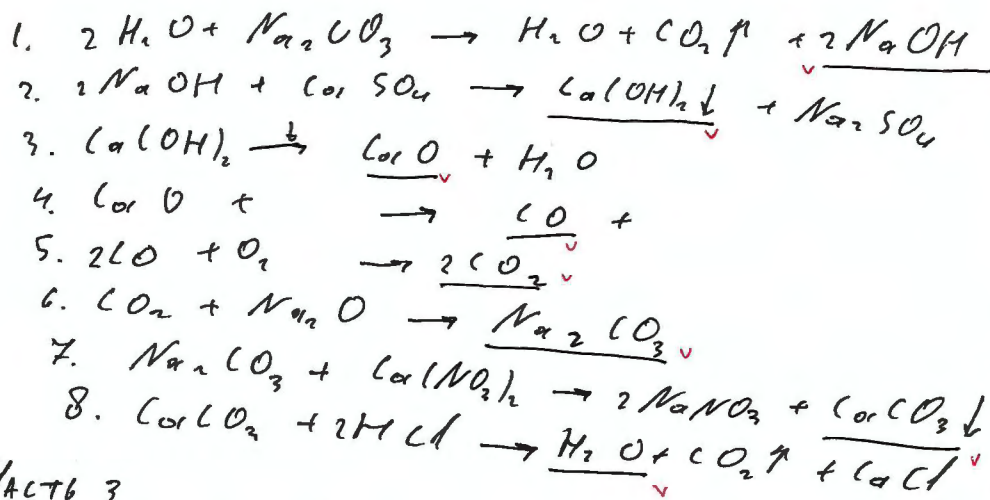 1. 2 H₂O + Na₂CO₃ → H₂O + CO₂↑ + 2 NaOH
2. 2 NaOH + CaSO₄ → Ca(OH)₂↓ + Na₂SO₄
3. Ca(OH)₂ →t CaO + H₂O
4. CaO + → CO +
5. 2CO + O₂ → 2CO₂
6. CO₂ + Na₂O → Na₂CO₃
7. Na₂CO₃ + Ca(NO₃)₂ → 2 NaNO₃ + CaCO₃↓
8. CaCO₃ + 2HCl → H₂O + CO₂↑ + CaCl
ЧАСТЬ 3